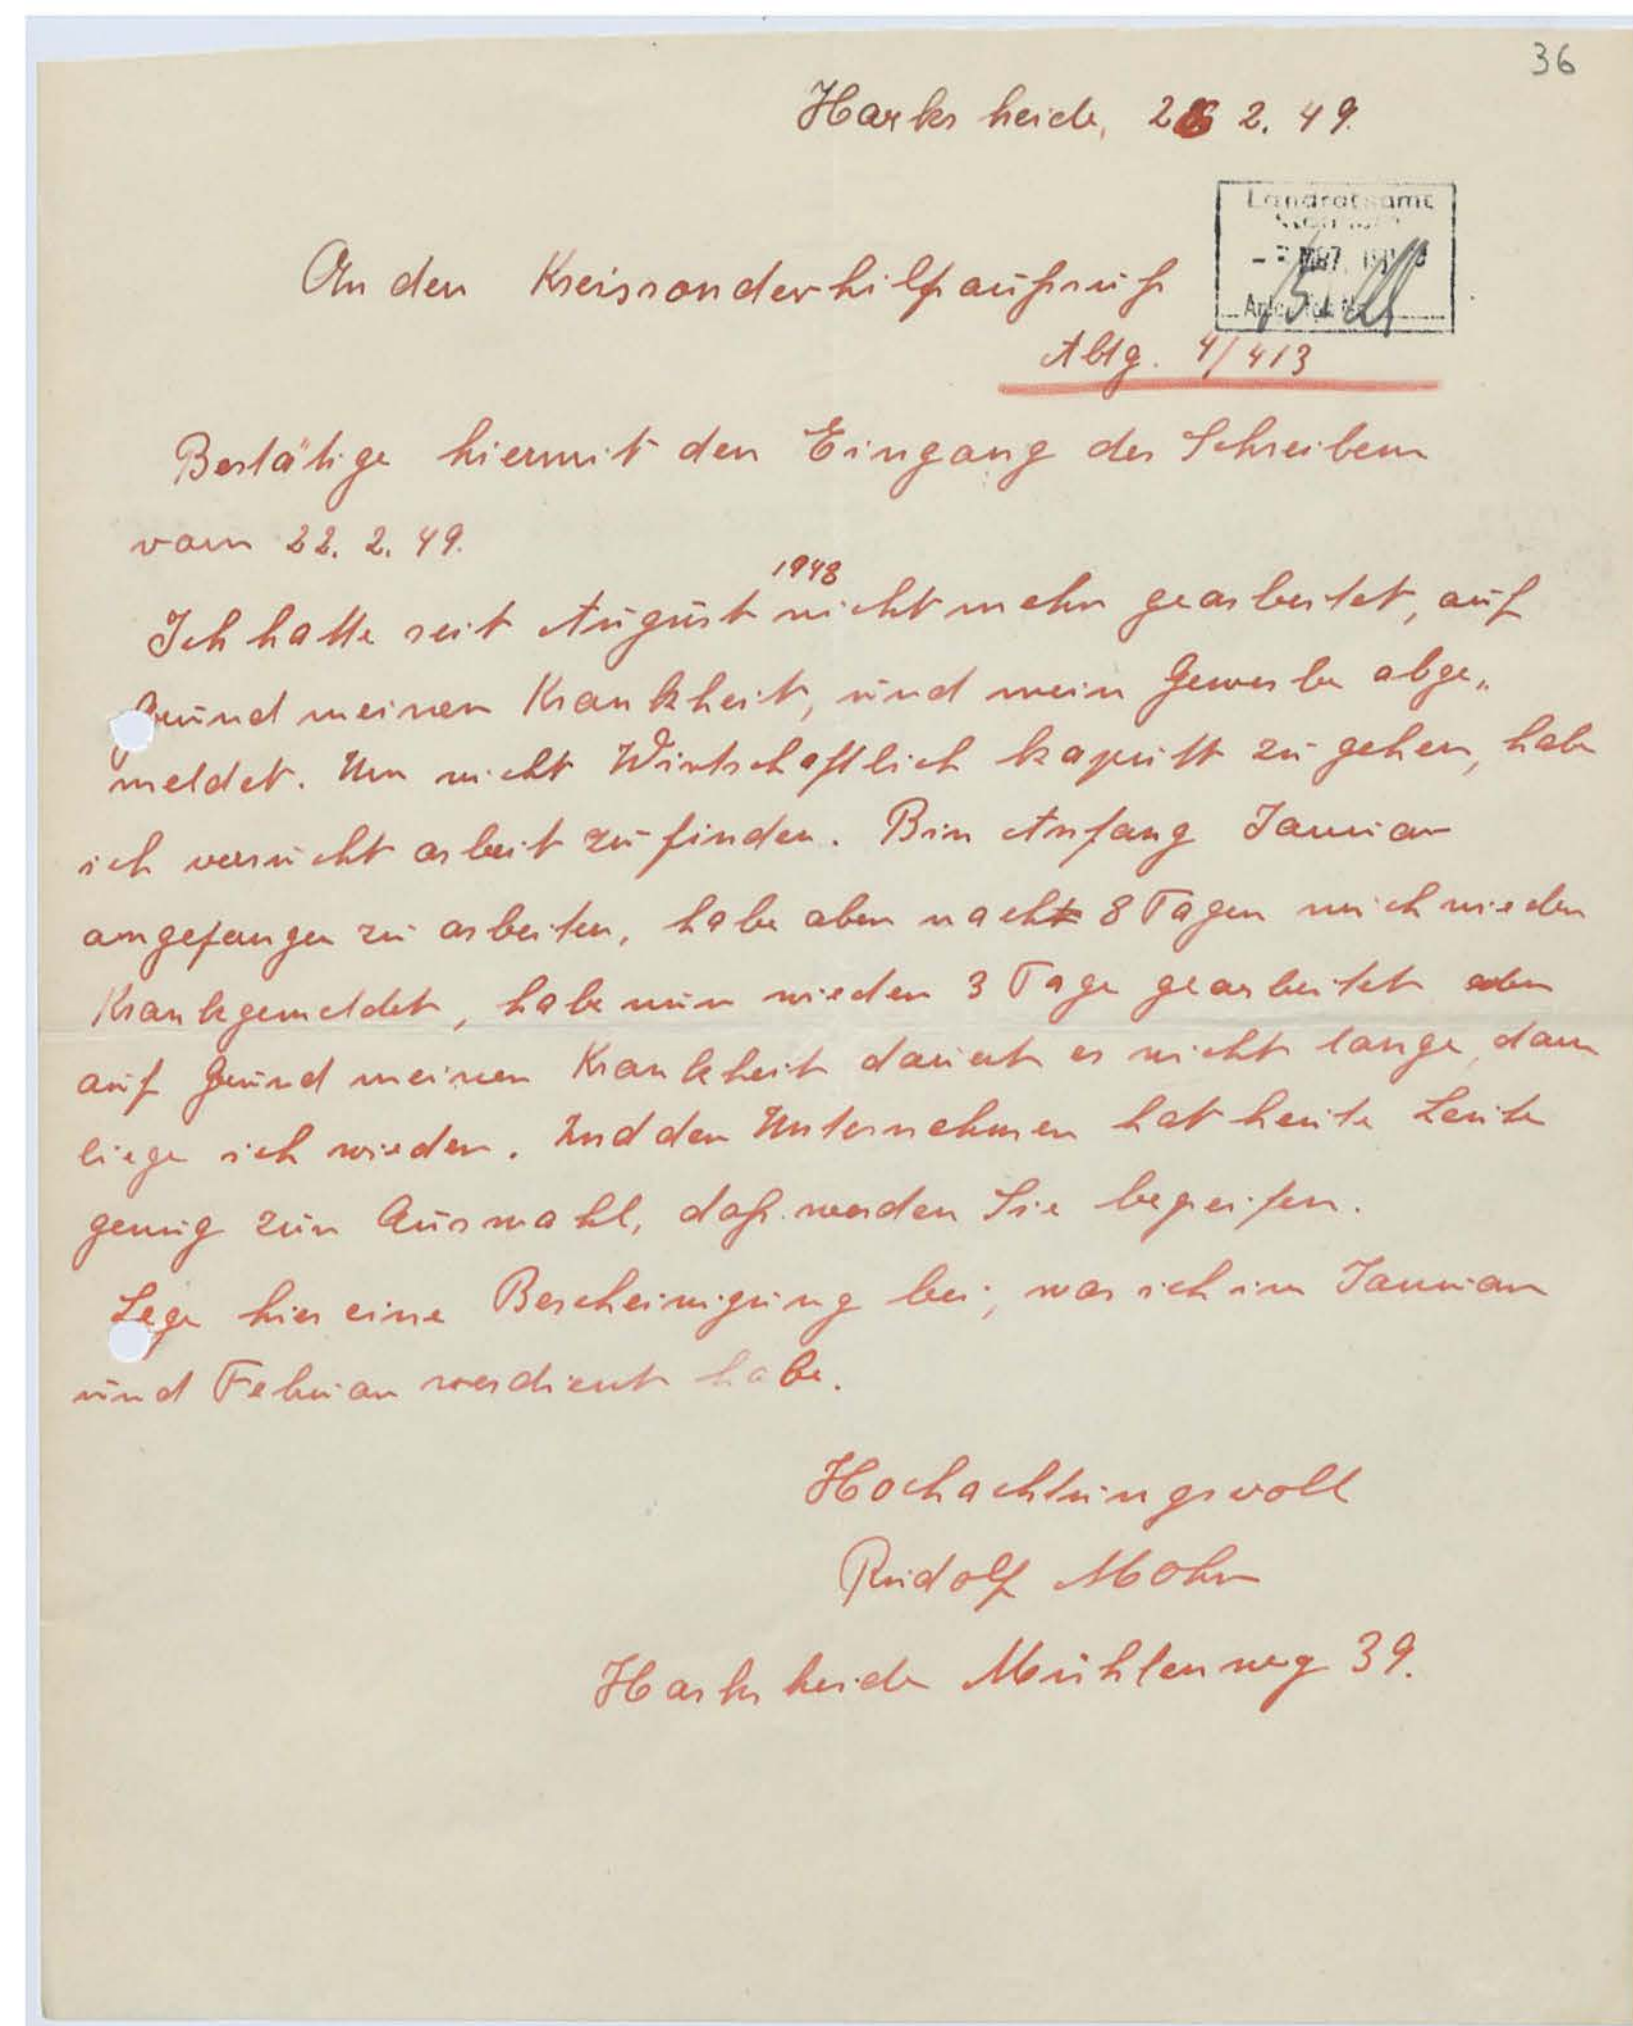 36
Harksheide, 2 2. 49.
Landratsamt
An den Kreissonderhilfaufruf
Abtg. 4/413
Bestätige hiermit den Eingang des Schreibens
vom 22. 2. 49.
1948
Ich hatte seit August nicht mehr gearbeitet, auf
Grund meiner Krankheit, und mein Gewerbe abge„
meldet. Um nicht Wirtschaftlich kaputt zu gehen, habe
ich versucht arbeit zu finden. Bin Anfang Januar
angefangen zu arbeiten, habe aber nach 8 Tagen mich wieder
Krankgemeldet, habe nun wieder 3 Tage gearbeitet aber
auf Grund meiner Krankheit dauert es nicht lange, dann
liege ich wieder. Und der Unternehmer hat heute Leute
genug zur Auswahl, daß werden Sie begreifen.
Lege hier eine Bescheinigung bei, was ich im Januar
und Februar verdient habe.
Hochachtungsvoll
Rudolf Mohr
Harksheide Mühlenweg 39.